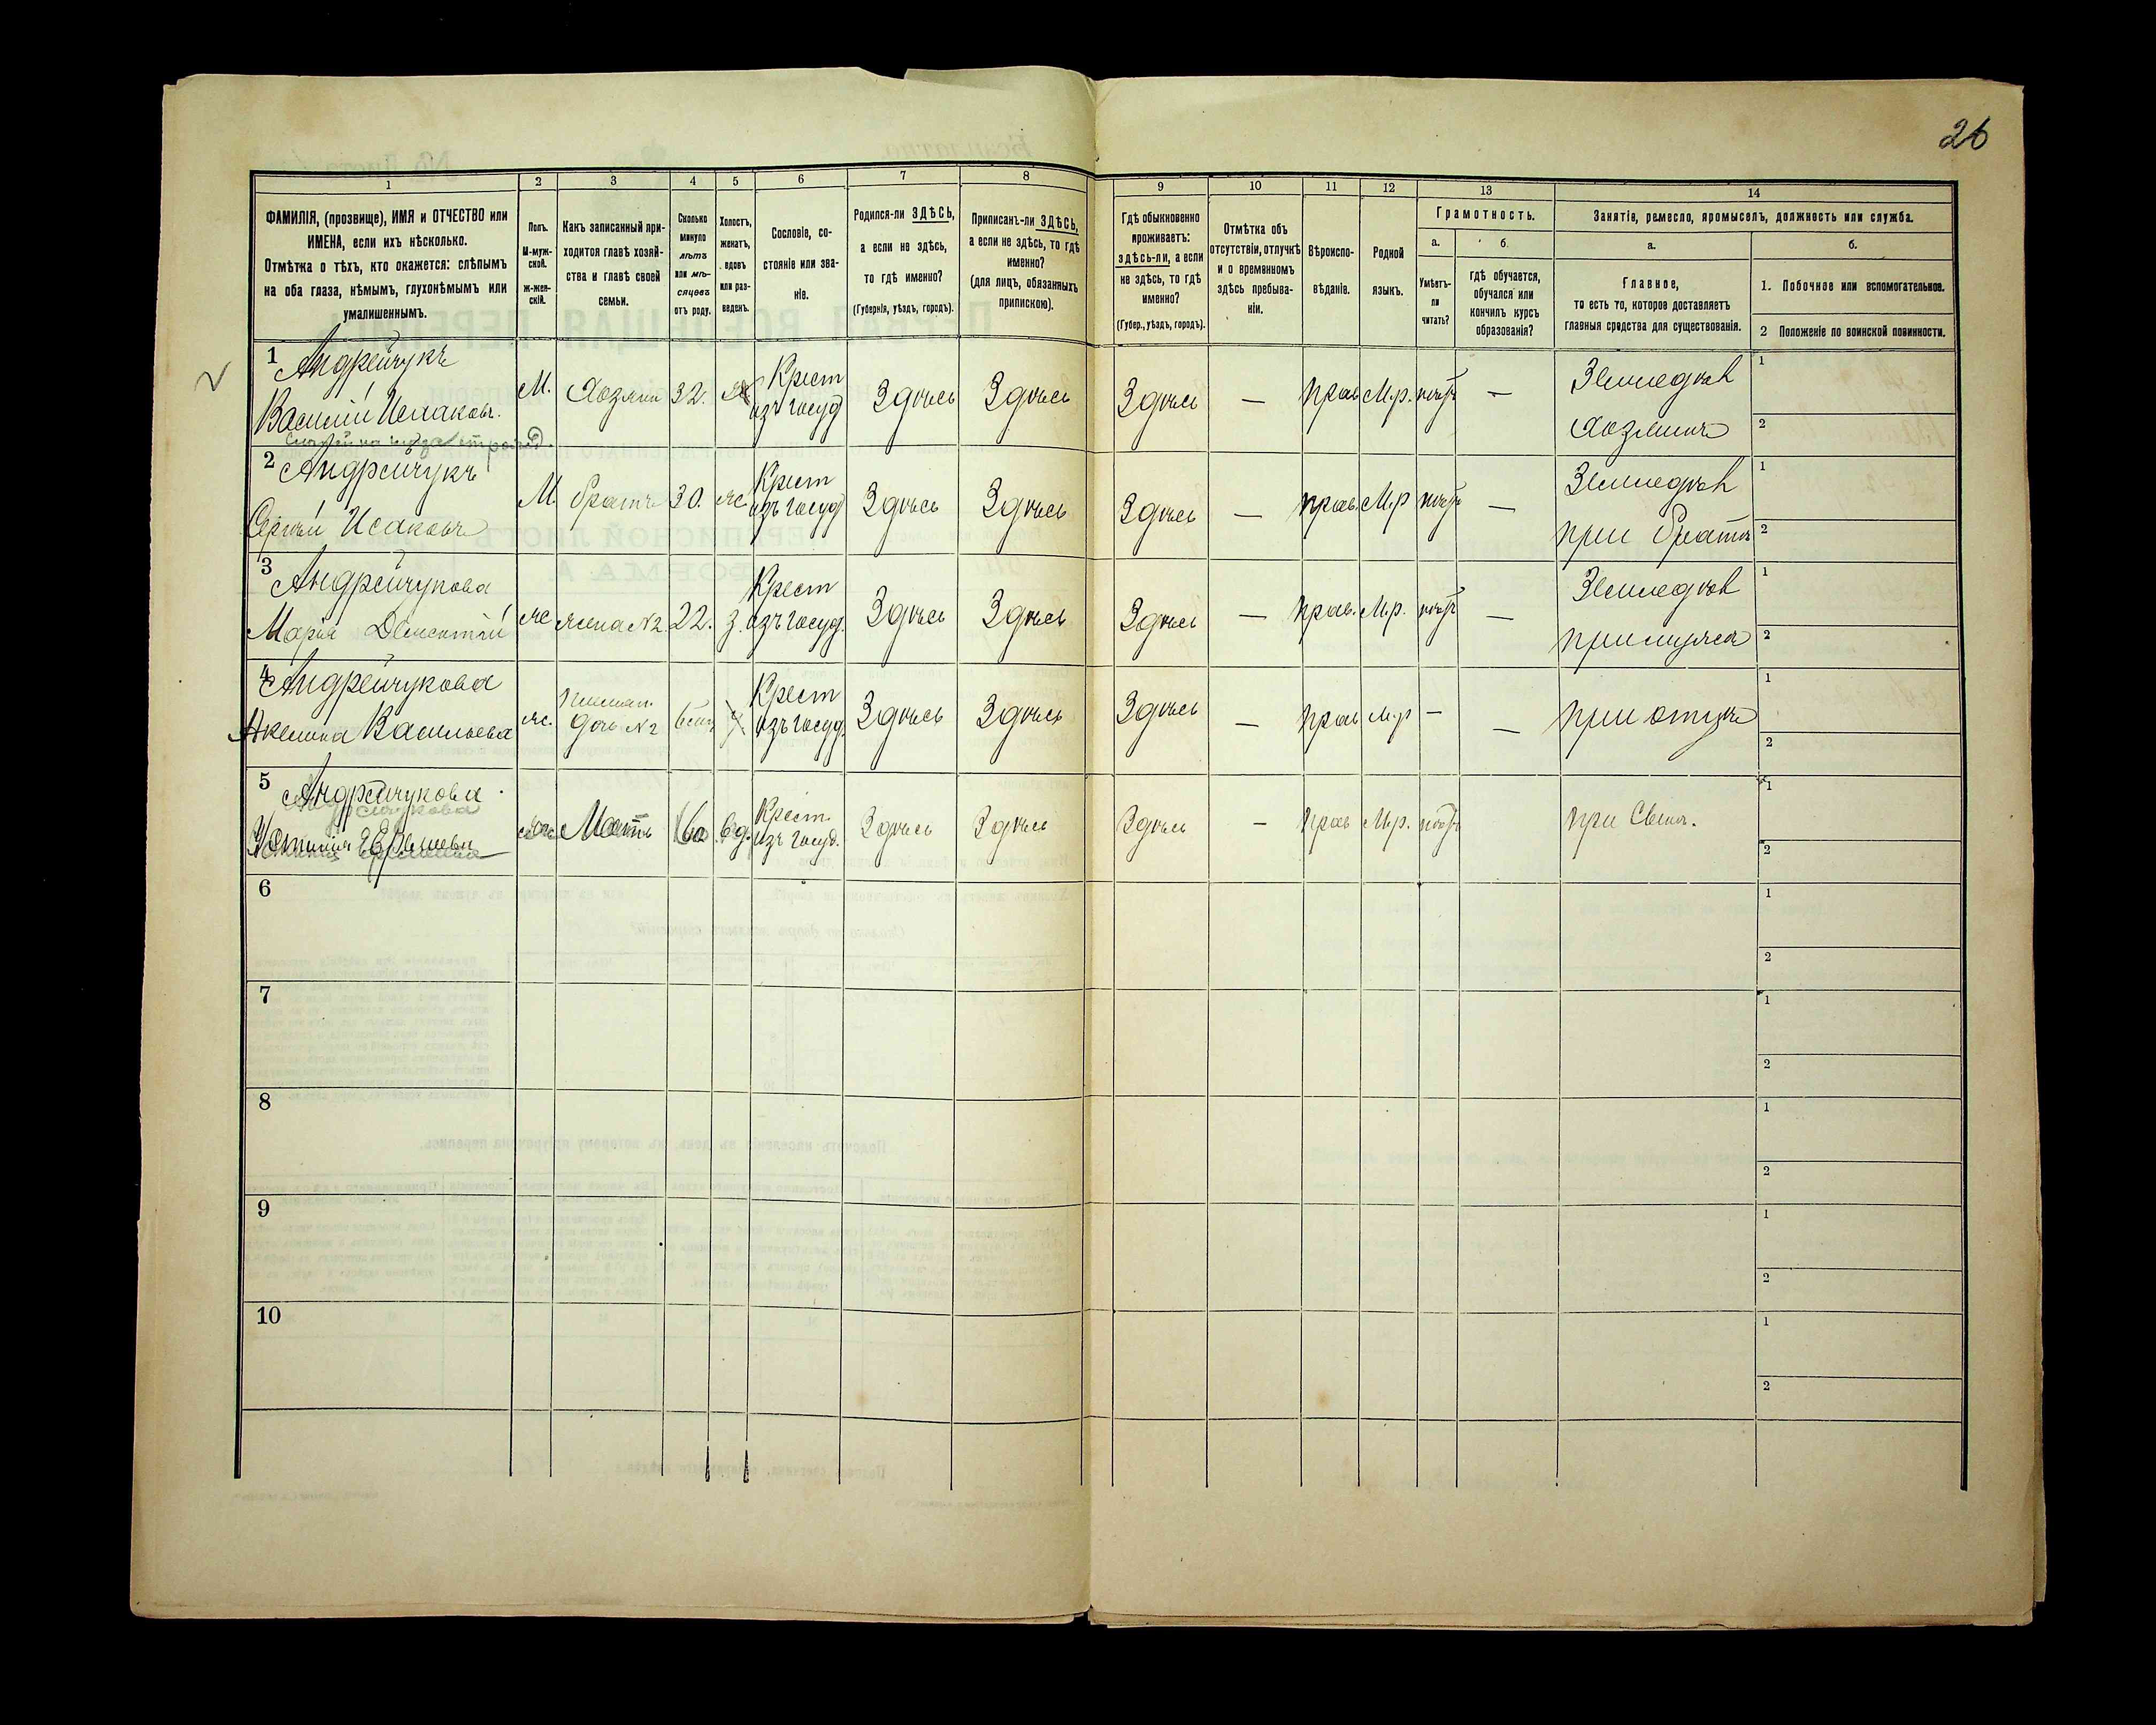 26
1
2
3
4
5
6
7
8
9
10
11
12
13
14
ФАМИЛІЯ, (прозвище), ИМЯ и ОТЧЕСТВО или
ИМЕНА, если ихъ нѣсколько.
Отмѣтка о тѣхъ, кто окажется: слѣпымъ
на оба глаза, нѣмымъ, глухонѣмымъ или
умалишеннымъ.
Полъ.
М-муж-
ской.
ж-жен-
скій.
Какъ записанный при-
ходится главѣ хозяй-
ства и главѣ своей
семьи.
Сколько
минуло
лѣтъ
или мѣ-
сяцевъ
отъ роду.
Холостъ,
женатъ,
вдовъ
или раз-
веденъ.
Сословіе, со-
стояніе или зва-
ніе.
Родился-ли ЗДѢСЬ,
а если не здѣсь,
то гдѣ именно?
(Губернія, уѣздъ, городъ).
Приписанъ-ли ЗДѢСЬ,
а если не здѣсь, то гдѣ
именно?
(для лицъ, обязанныхъ
припискою).
Гдѣ обыкновенно
проживаетъ:
здѣсь-ли, а если
не здѣсь, то гдѣ
именно?
(Губер., уѣздъ, городъ).
Отмѣтка объ
отсутствіи, отлучкѣ
и о временномъ
здѣсь пребыва-
ніи.
Вѣроиспо-
вѣданіе.
Родной
языкъ.
Грамотность.
а.
Умѣетъ-
ли
читать?
б.
Гдѣ обучается,
обучался или
кончилъ курсъ
образованія?
Занятіе, ремесло, промыселъ, должность или служба.
а.
Главное,
то есть то, которое доставляетъ
главныя средства для существованія.
б.
1. Побочное или вспомогательное.
2 Положеніе по воинской повинности.
1 Андрейчукъ
Василій Исаковъ.
М.
Хозяин
32.
Крест
изъ госуд
Здѣсь
Здѣсь
Здѣсь
—
прав
М.р.
—
Земледѣл
Хозяинъ
1
2
2 Андрейчукъ
Исаковъ
М.
братъ
30.
же
Крест
изъ госуд
Здѣсь
Здѣсь
Здѣсь
—
прав.
М.р
—
Земледѣл
при братѣ
1
2
3 Андрейчукова
Мария
же
жена №2
22.
з.
Крест
изъ госуд.
Здѣсь
Здѣсь
Здѣсь
—
прав.
М.р.
—
Земледѣл
при мужѣ
1
2
4 Андрейчукова
Акелина Васильева
же.
дочь №2
Крест
изъ госуд.
Здѣсь
Здѣсь
Здѣсь
—
прав
М.р
—
—
при отцѣ
1
2
5 Андрейчукова
Мать
60
вд.
Крест.
изъ госуд.
Здѣсь
Здѣсь
Здѣсь
—
прав
М.р.
при
1
2
6
1
2
7
1
2
8
1
2
9
1
2
10
1
2